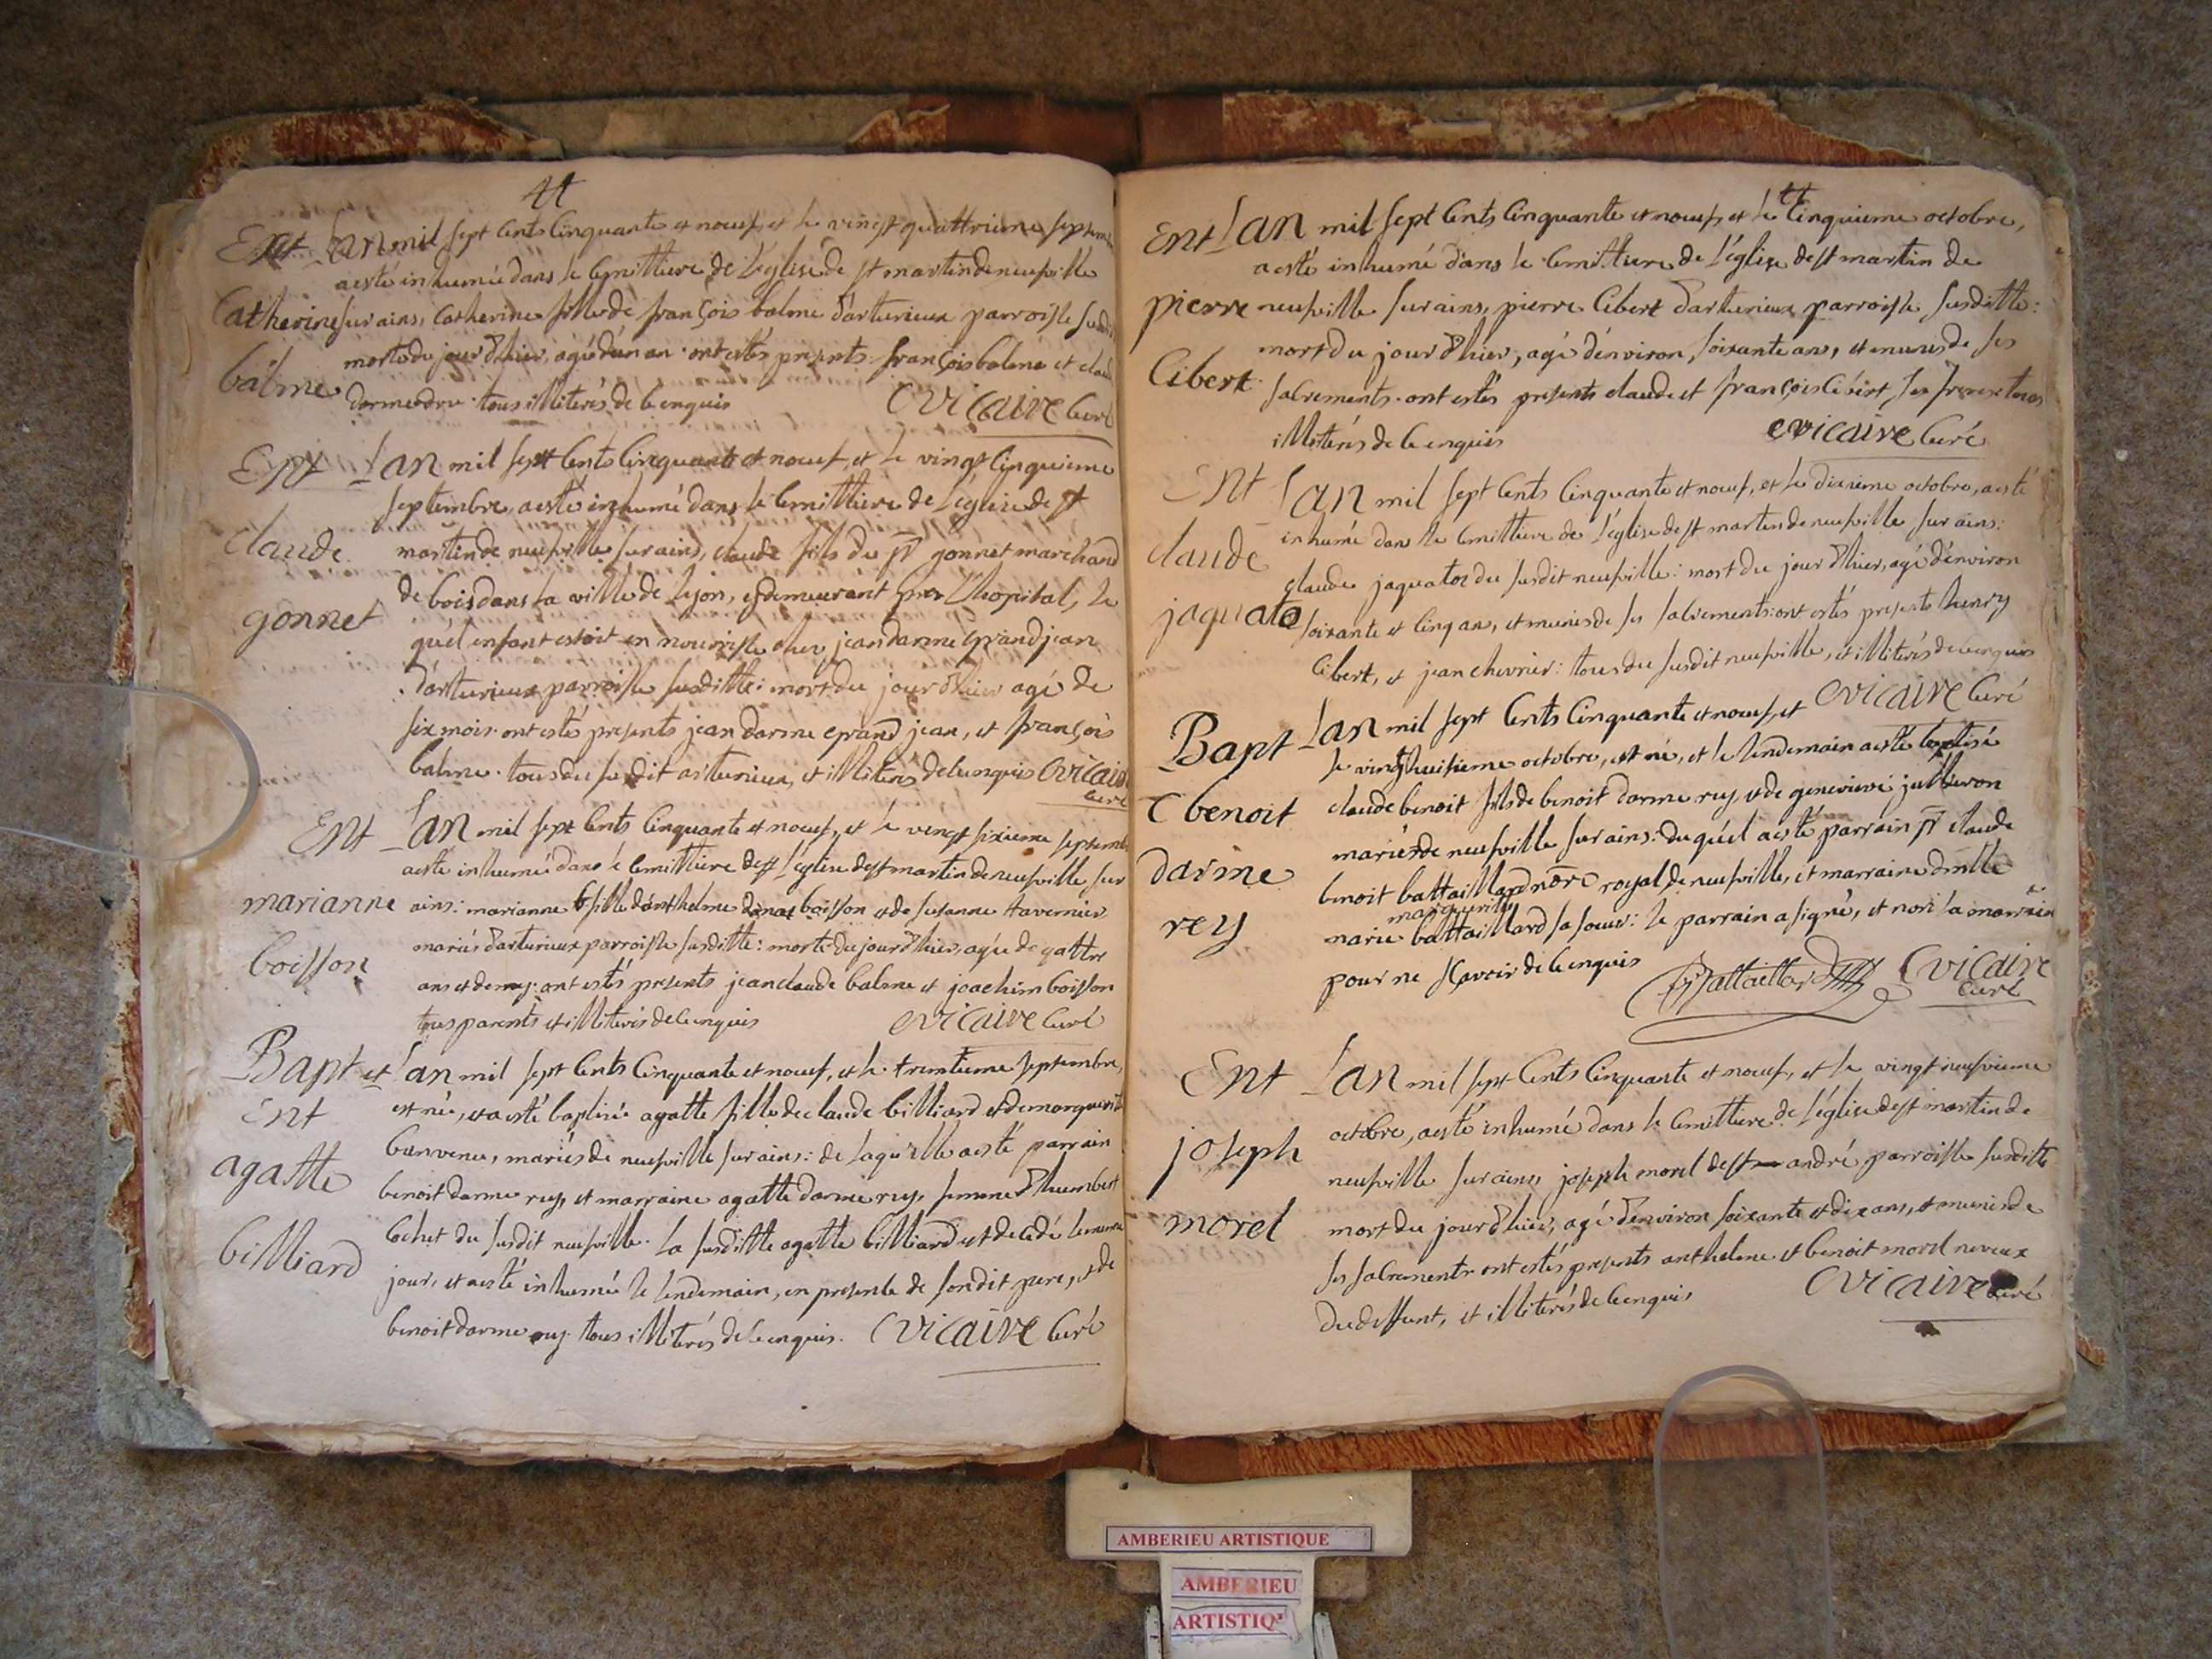 44
Ent Lan mil sept cents cinquante et noeuf, et le vingt quattrieme septem
aesté inhumé dans le cemittiere de l'église de st martin de neufville
Catherine sur ains, catherine fille de françois balme d'arturieux parroisse susdi
morte du jour d'hier, agé d'un an. ont estés presents: françois balme et clau
balme tous illiterés de ce enquis cvicaire curé
Ent Lan mil sept cents cinquante et noeuf, et le vingt cinquieme
septembre, aesté inhumé dans le cemittiere de l'église de st
claude martin de neufville sur ains, claude fils du sr gonnet marchand
de bois dans la ville de lyon, y demeurant pres l'hopital, le
gonnet quel enfant estoit en nourisse chez jean darme grand jean
d'arturieux parroisse susditte: mort du jour d'hier agé de
six mois. ont estés presents jean darme grand jean, et françois
balme. tous du susdit arturieux, et illiterés de ce enquis cvicaire
curé
Ent Lan mil sept cents cinquante et noeuf, et le vingt sixieme septemb
aesté inhumé dans le cemittiere de l'église de st martin de neufville sur
marianne ains: marianne fille d'anthelme boisson et de susanne tavernier
mariés d'arturieux parroisse susditte: morte du jour d'hier, agée de quattre
boisson ans et demy. ont estés presents jean claude balme et joachim boisson
tous parents et illiterés de ce enquis cvicaire curé
Bapt et Lan mil sept cents cinquante et noeuf, et le trentieme septembre,
Ent est née, et aesté baptisée agatte fille de claude billiard et de marguerit
bienvenu, mariés de neufville sur ains: de laquelle aesté parrain
agatte benoit darme rey, et marraine agatte darme rey, femme d'humbert
cochet du susdit neufville. la susditte agatte billiard est decedé le meme
billiard jour, et aesté inhumée le lendemain, en presence de son dit pere, et de
benoit darme rey. tous illiterés de ce enquis. cvicaire curé
44
Ent Lan mil sept cents cinquante et noeuf, et le cinquieme octobre,
aesté inhumé dans le cemittiere de l'église de st martin de
pierre neufville sur ains, pierre cibert d'arturieux parroisse susditte:
mort du jour d'hier, agé d'environ soixante ans, et munis de ses
Cibert sacrements. ont estés presents claude et françois cibert, ses freres tous
illiterés de ce enquis cvicaire curé
Ent Lan mil sept cents cinquante et noeuf, et le dixieme octobre, aesté
inhumé dans le cemittiere de l'église de st martin de neufville sur ains:
claude claude jaquatoz du susdit neufville: mort du jour d'hier, agé d'environ
jaquato soixante et cinq ans, et munis de ses sacrements: ont estés presents henry
cibert, et jean chevrier: tous du susdit neufville, et illiterés de ce enquis
cvicaire curé
Bapt Lan mil sept cents cinquante et noeuf, et
le vingt huitieme octobre, est né, et le lendemain aesté baptisé
C benoit claude benoit fils de benoit darme rey et de genevieve
mariés de neufville sur ains: du quel aesté parrain sr claude
darme benoit battaillard nore royal de neufville, et marraine dmlle
marguerite
rey marie battaillard sa soeur: le parrain a signé, et non la marraine
pour ne sçavoir de ce enquis Battaillard cvicaire
curé
Ent Lan mil sept cents cinquante et noeuf, et le vingt neufvieme
octobre, aesté inhumé dans le cemittiere de l'église de st martin de
joseph neufville sur ains, joseph morel de st andré parroisse susditte
morel mort du jour d'hier, agé d'environ soixante et dix ans, et munis de
ses sacrements ont estés presents anthelme et benoit morel neveux
du deffunt, et illiterés de ce enquis cvicaire curé
AMBERIEU ARTISTIQUE
AMBERIEU
ARTISTIQ